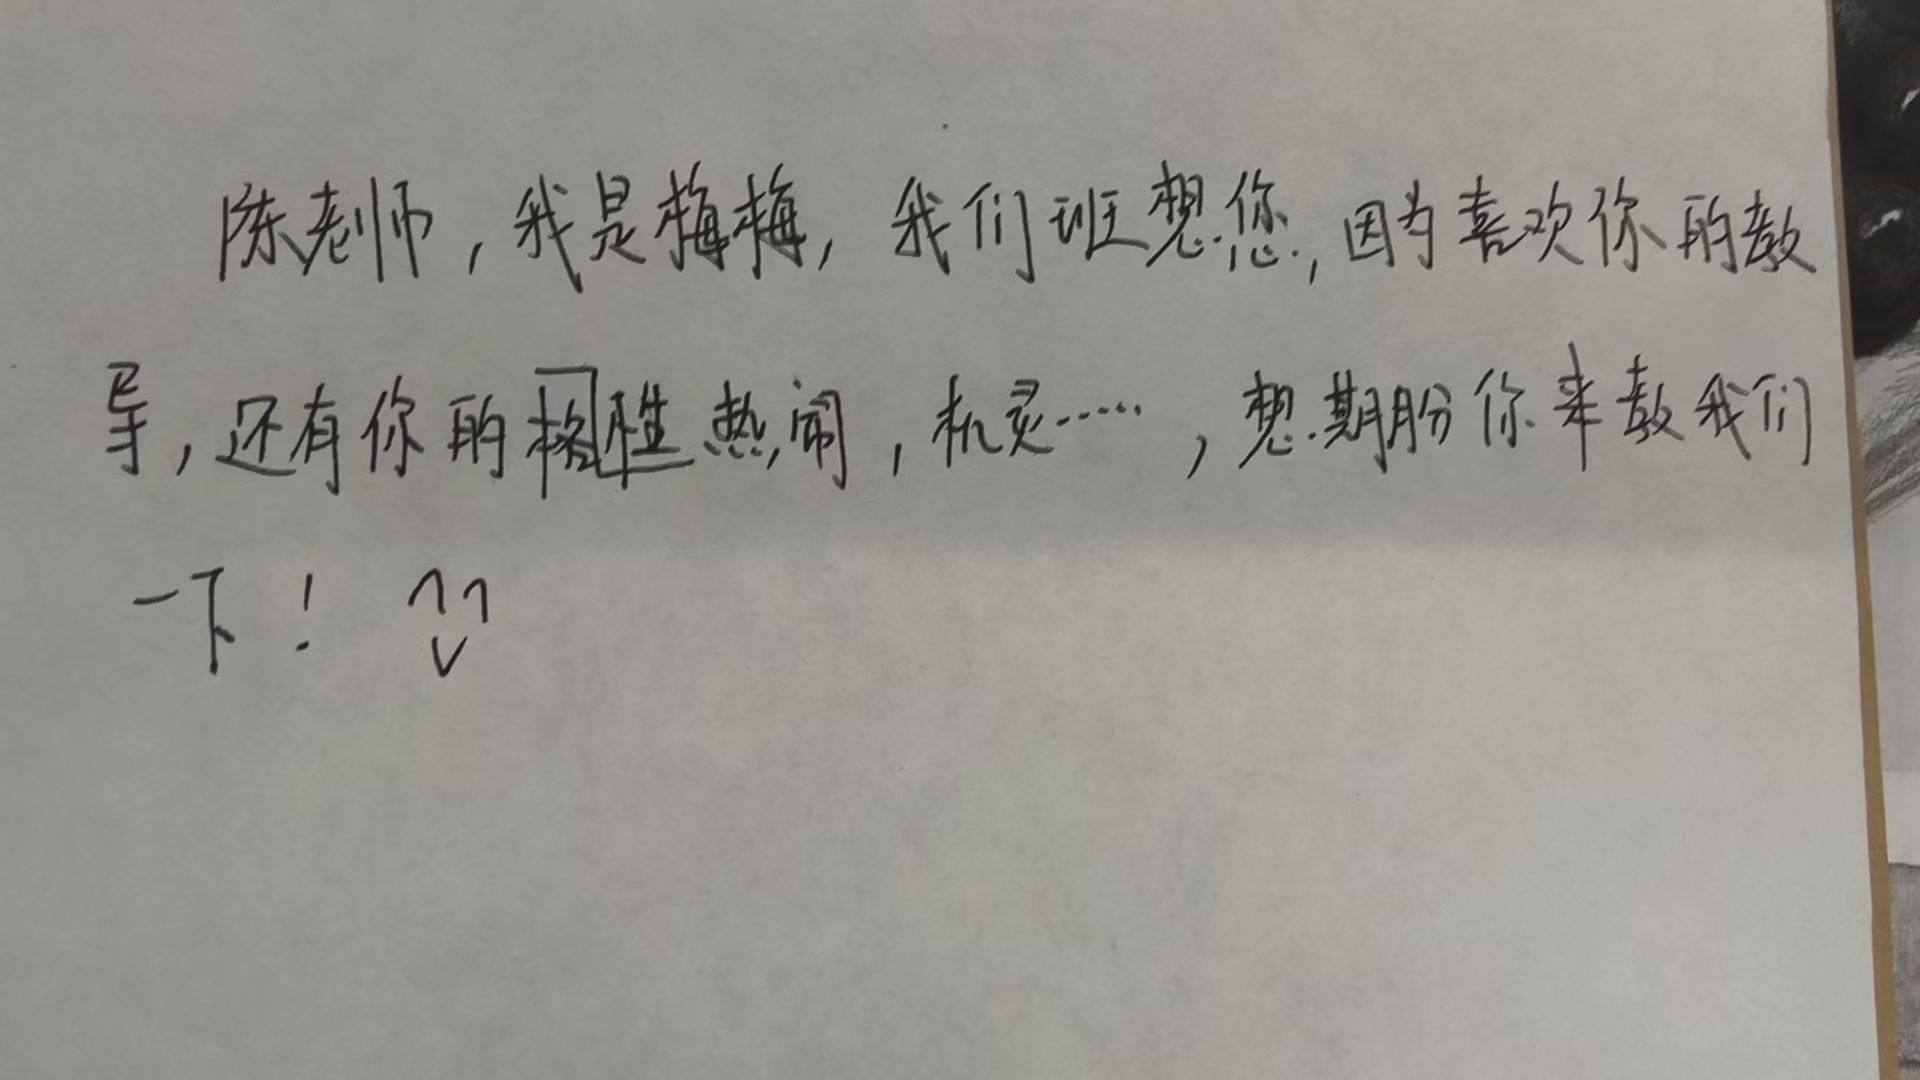 陈老师，我是梅梅，我们班想您，因为喜欢你的教
导，还有你的格性热闹，机灵……，想期盼你来教我们
一下！ ^^
v